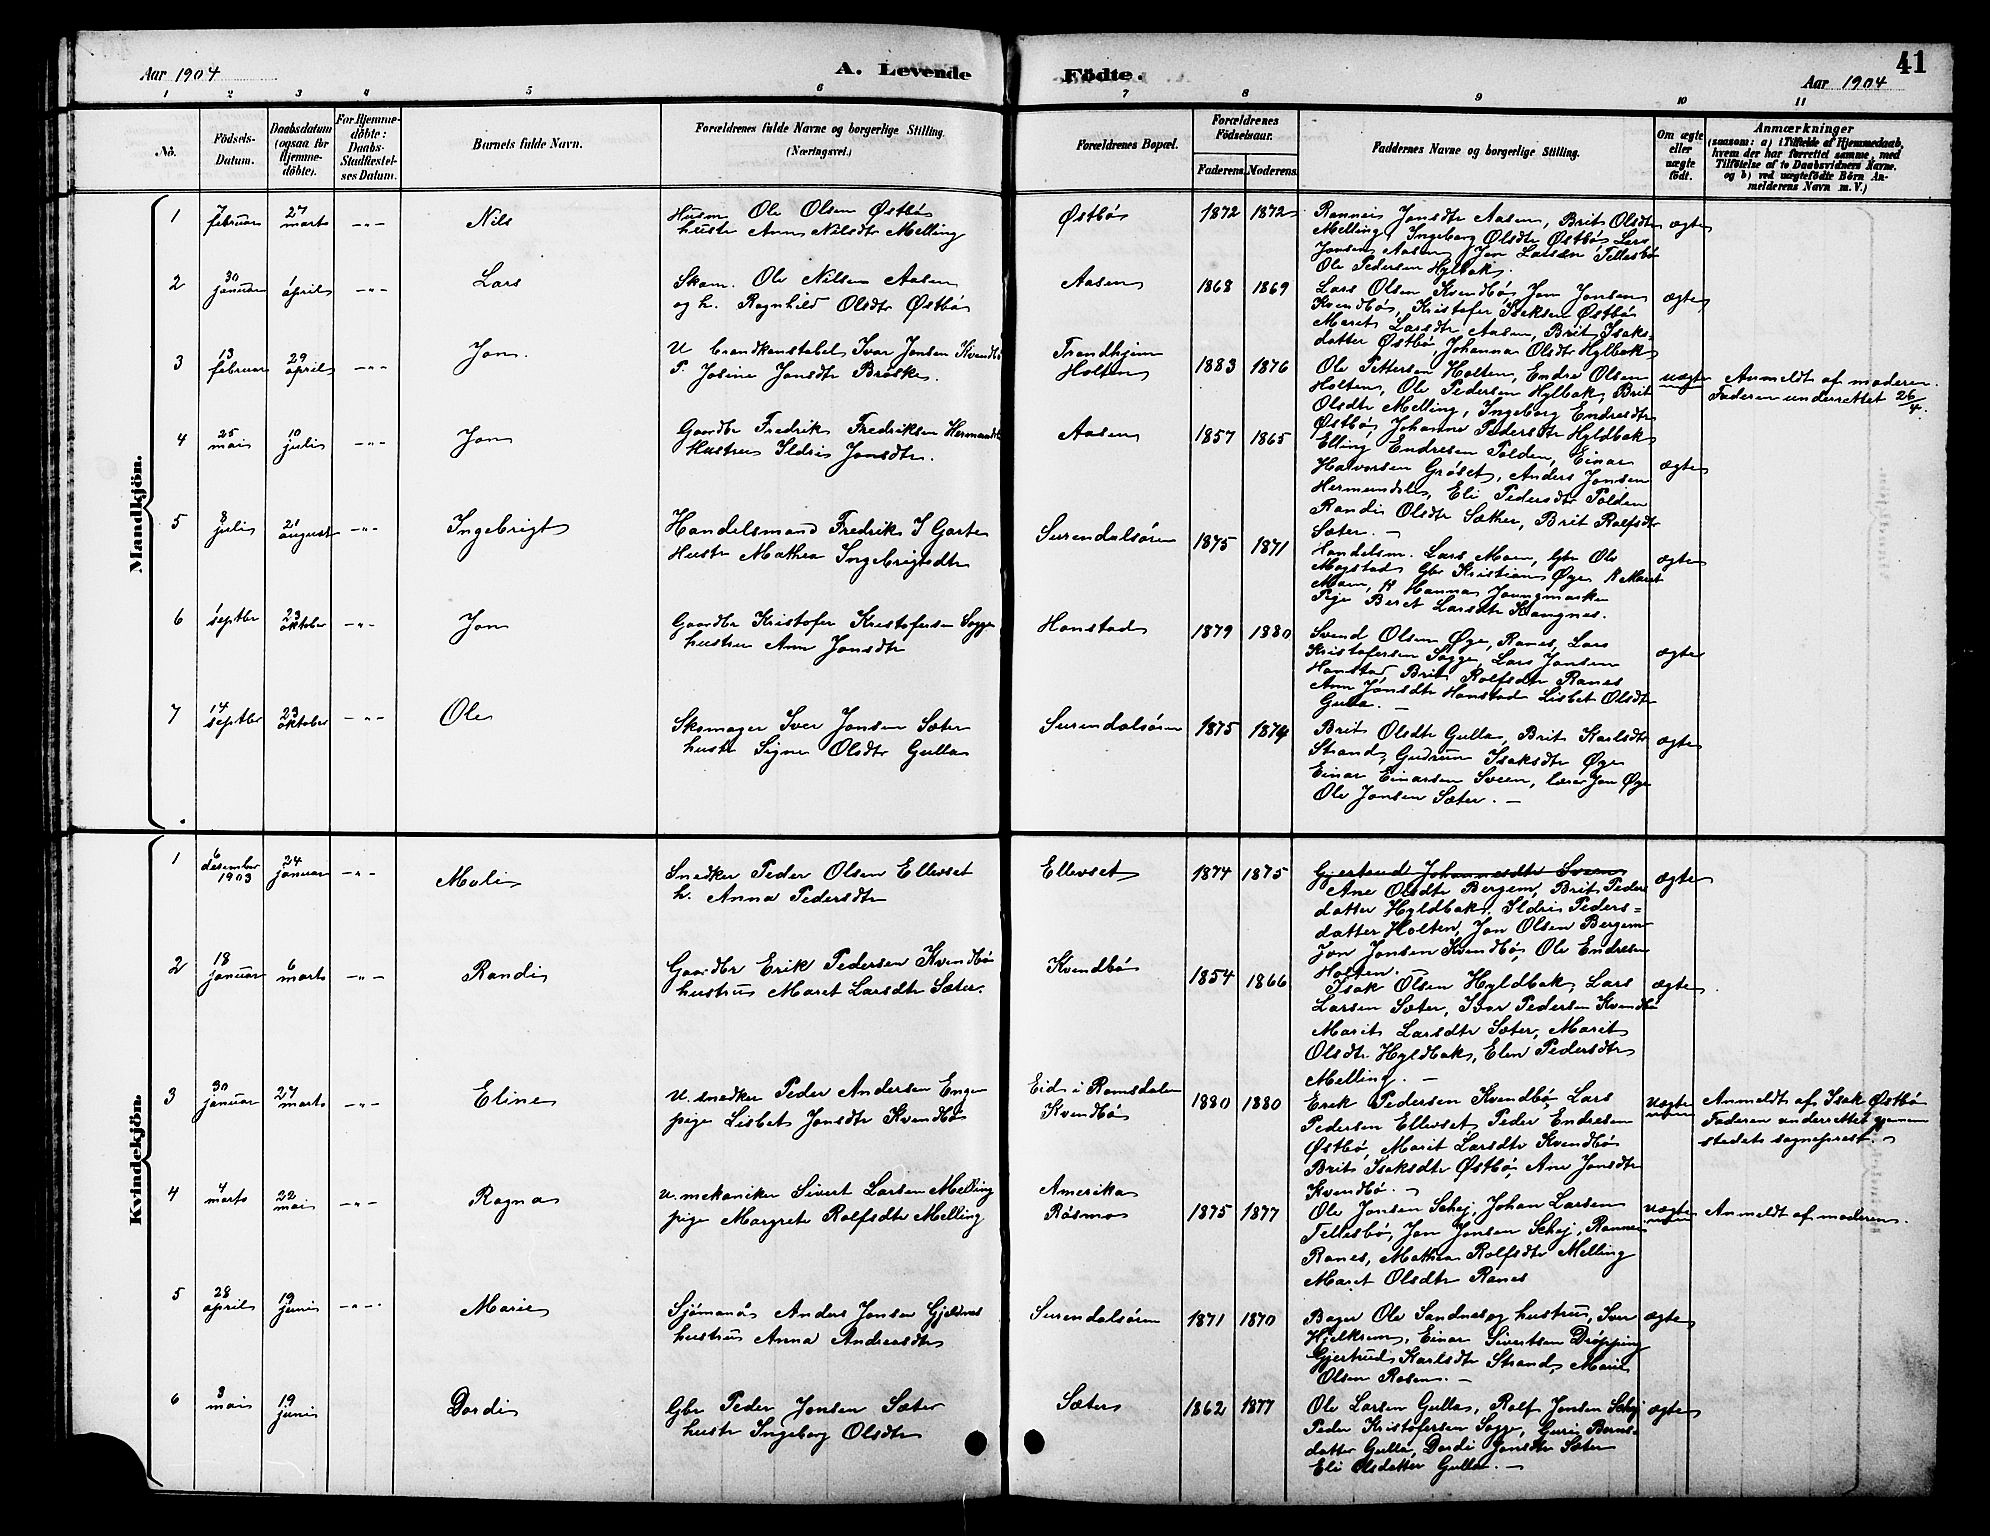 Aar 1904
A. Levende Födte.
Aar 1904
41
1 2 3 4 5 6 7 8 9 10 11
No.
Födsels-
Datum.
Daabsdatum
(ogsaa for
Hjemme-
döbte).
For Hjemme-
döbte:
Daabs-
Stadfæstel-
ses Datum.
Barnets fulde Navn.
Forældrenes fulde Navne og borgerlige Stilling.
(Næringsvei.)
Forældrenes Bopæl.
Forældrenes
Födselsaar.
Faderens. Moderens.
Faddernes Navne og borgerlige Stilling.
Om ægte
eller
uægte
födt.
Anmærkninger
(saasom: a) i Tilfælde af Hjemmedaab,
hvem der har forrettet samme, med
Tilföielse af to Daabsvidners Navne.
og b) ved uægtefödte Börn An-
melderens Navn m. V.)
Mandkjön.
1
7
februar
27
marts
-"-
Nils
Husm. Ole Olsen Østbø
hustr Ann Nilsdtr Melling
Østbø
1872 1872
Rannei Jonsdtr Aasen, Brit Olsdtr
Melling, Ingeborg Olsdtr Østbø, Lars
Jonsen Aasen, Jon Larsen Tellesbø
Ole Pedersen Hylbak.
ægte
2
30
januar
1
april
-"-
Lars
Skom. Ole Nilsen Aasen
og h. Ragnhild Olsdtr Østbø
Aasen
1868 1869
Lars Olsen Kvendbø, Jon Jonsen
Kvendbø, Kristofer Isaksen Østbø
Maret Larsdtr Aasen, Brit Isaks-
datter Østbø, Johanna Olsdtr Hylbak
ægte
3
13
februar
29
april
-"-
Jon.
U brandkonstabel Ivar Jonsen Kvendbø
P. Josine Jonsdtr Brøske.
Trondhjem
Holten
1883 1876
Ole Pettersen Holten, Endre Olsen
Holten, Ole Pedersen Hylbak, Brit
Olsdtr Melling, Ingeborg Endresdtr
Østbø, Johanne Pedersdtr Hyldbak
uægte
Anmeldt af moderen.
Faderen underrettet 26/4.
4
25
mai
10
juli
-"-
Jon
Gaardbr Fredrik Fredriksen Hermundsl
Hustru Ildri Jonsdtr.
Aasen
1857 1865
Elling Endresen Polden, Einar
Halvorsen Grøset, Anders Jonsen
Hermundsl, Eli Pedersdtr Polden
Randi Olsdtr Sæther, Brit Rolfsdtr
Sæter. —
ægte
5
8
juli
21
august
-"-
Ingebrigt
Handelsmand Fredrik I Garte
Hustr Mathea Ingebrigtsdtr
Surendalsøren
1875 1871
Handelsm. Lars Moen, Gbr Ole
Mogstad, Gbr Kristian Øye, K Maret
Moen, K Hanna Joungmarken
Pige Beret Larsdtr Kangnes.
ægte
6
1
septbr
23
oktober
-"-
Jon
Gaardbr Kristofer Kristofersen Sogge
hustru Ann Jonsdtr
Honstad
1879 1880
Svend Olsen Øye, Ranes, Lars
Kristofersen Sogge, Lars Jonsen
Honstad, Brit Rolfsdtr Ranes
Ann Jonsdtr Honstad Lisbet Olsdtr
Gulla. —
ægte
7
14
septbr
23
oktober
-"-
Ole
Skomager Iver Jonsen Sæter
hustr Signe Olsdtr Gulla
Surendalsøren
1875 1874
Brit Olsdtr Gulla, Brit Karlsdtr
Strand, Gudrun Isaksdtr Øye
Einar Einarsen Sveen, lærer Jon Øye
Ole Jonsen Sæter. —
ægte
Kvindekjön.
1
6
desember
1903
24
januar
-"-
Mali
Snedker Peder Olsen Ellevset
h. Anna Pedersdtr
Ellevset
1874 1875
Gjertrud Johannesdtr Sveen
Ane Olsdtr Bergem, Brit Peder
datter Hyldbak. Ildri Peders-
datter Holten, Jon Olsen Bergem
Jon Jonsen Kvendbø, Ole Endresen
Holten.
ægte
2
18
januar
6
marts
-"-
Randi
Gaardbr Erik Pedersen Kvendbø
hustru Maret Larsdtr Sæter.
Kvendbø
1854 1866
Isak Olsen Hyldbak, Lars
Larsen Sæter, Ivar Pedersen Kvendbø
Marit Larsdtr Sæter, Marit
Olsdtr Hyldbak, Elen Pedersdtr
Melling. —
ægte
3
30
januar
27
marts
-"-
Eline
U. snedker Peder Andersen Enge
pige Lisbet Jonsdtr Kvendbø
Eid i Romsdalen
Kvendbø
1880 1880
Erik Pedersen Kvendbø, Lars
Pedersen Ellevset, Peder Endresen
Østbø, Marit Larsdtr Kvendbø
Brit Isaksdtr Østbø, Ane Jonsdtr
Kvendbø. —
uægte
Anmeldt af Isak Østbø
Faderen underrettet gjennem
stedets sogneprest.
4
4
marts
22
mai
-"-
Ragna
U. mekaniker Sivert Larsen Melling
pige Margrete Rolfsdtr Melling
Amerika
Røsmo
1875 1877
Ole Jonsen Schej, Johan Larsen
Tellesbø, Jon Jonsen Schej, Rannei
Ranes, Mathea Rolfsdtr Melling
Maret Olsdtr Ranes
uægte
Anmeldt af moderen.
5
28
april
19
juni
-"-
Marie
Sjømand Anders Jonsen Gjeldnes
hustru Anna Andersdtr
Surendalsøren
1871 1870
Bager Ole Sandnes og hustru, Iver
Hjelkrem, Einar Sivertsen Drøpping
Gjertrud Karlsdtr Strand, Marie
Olsen Rosen. —
ægte
6
3
mai
19
juni
Dordi
Gbr Peder Jonsen Sæter
hustr Ingeborg Olsdtr
Sæter
1862 1877
Ole Larsen Gulla, Rolf Jonsen Schej
Peder Kristofersen Sogge, Guri Bernts-
datter Gulla, Dordi Jonsdtr Sæter
Eli Olsdatter Gulla. —
ægte